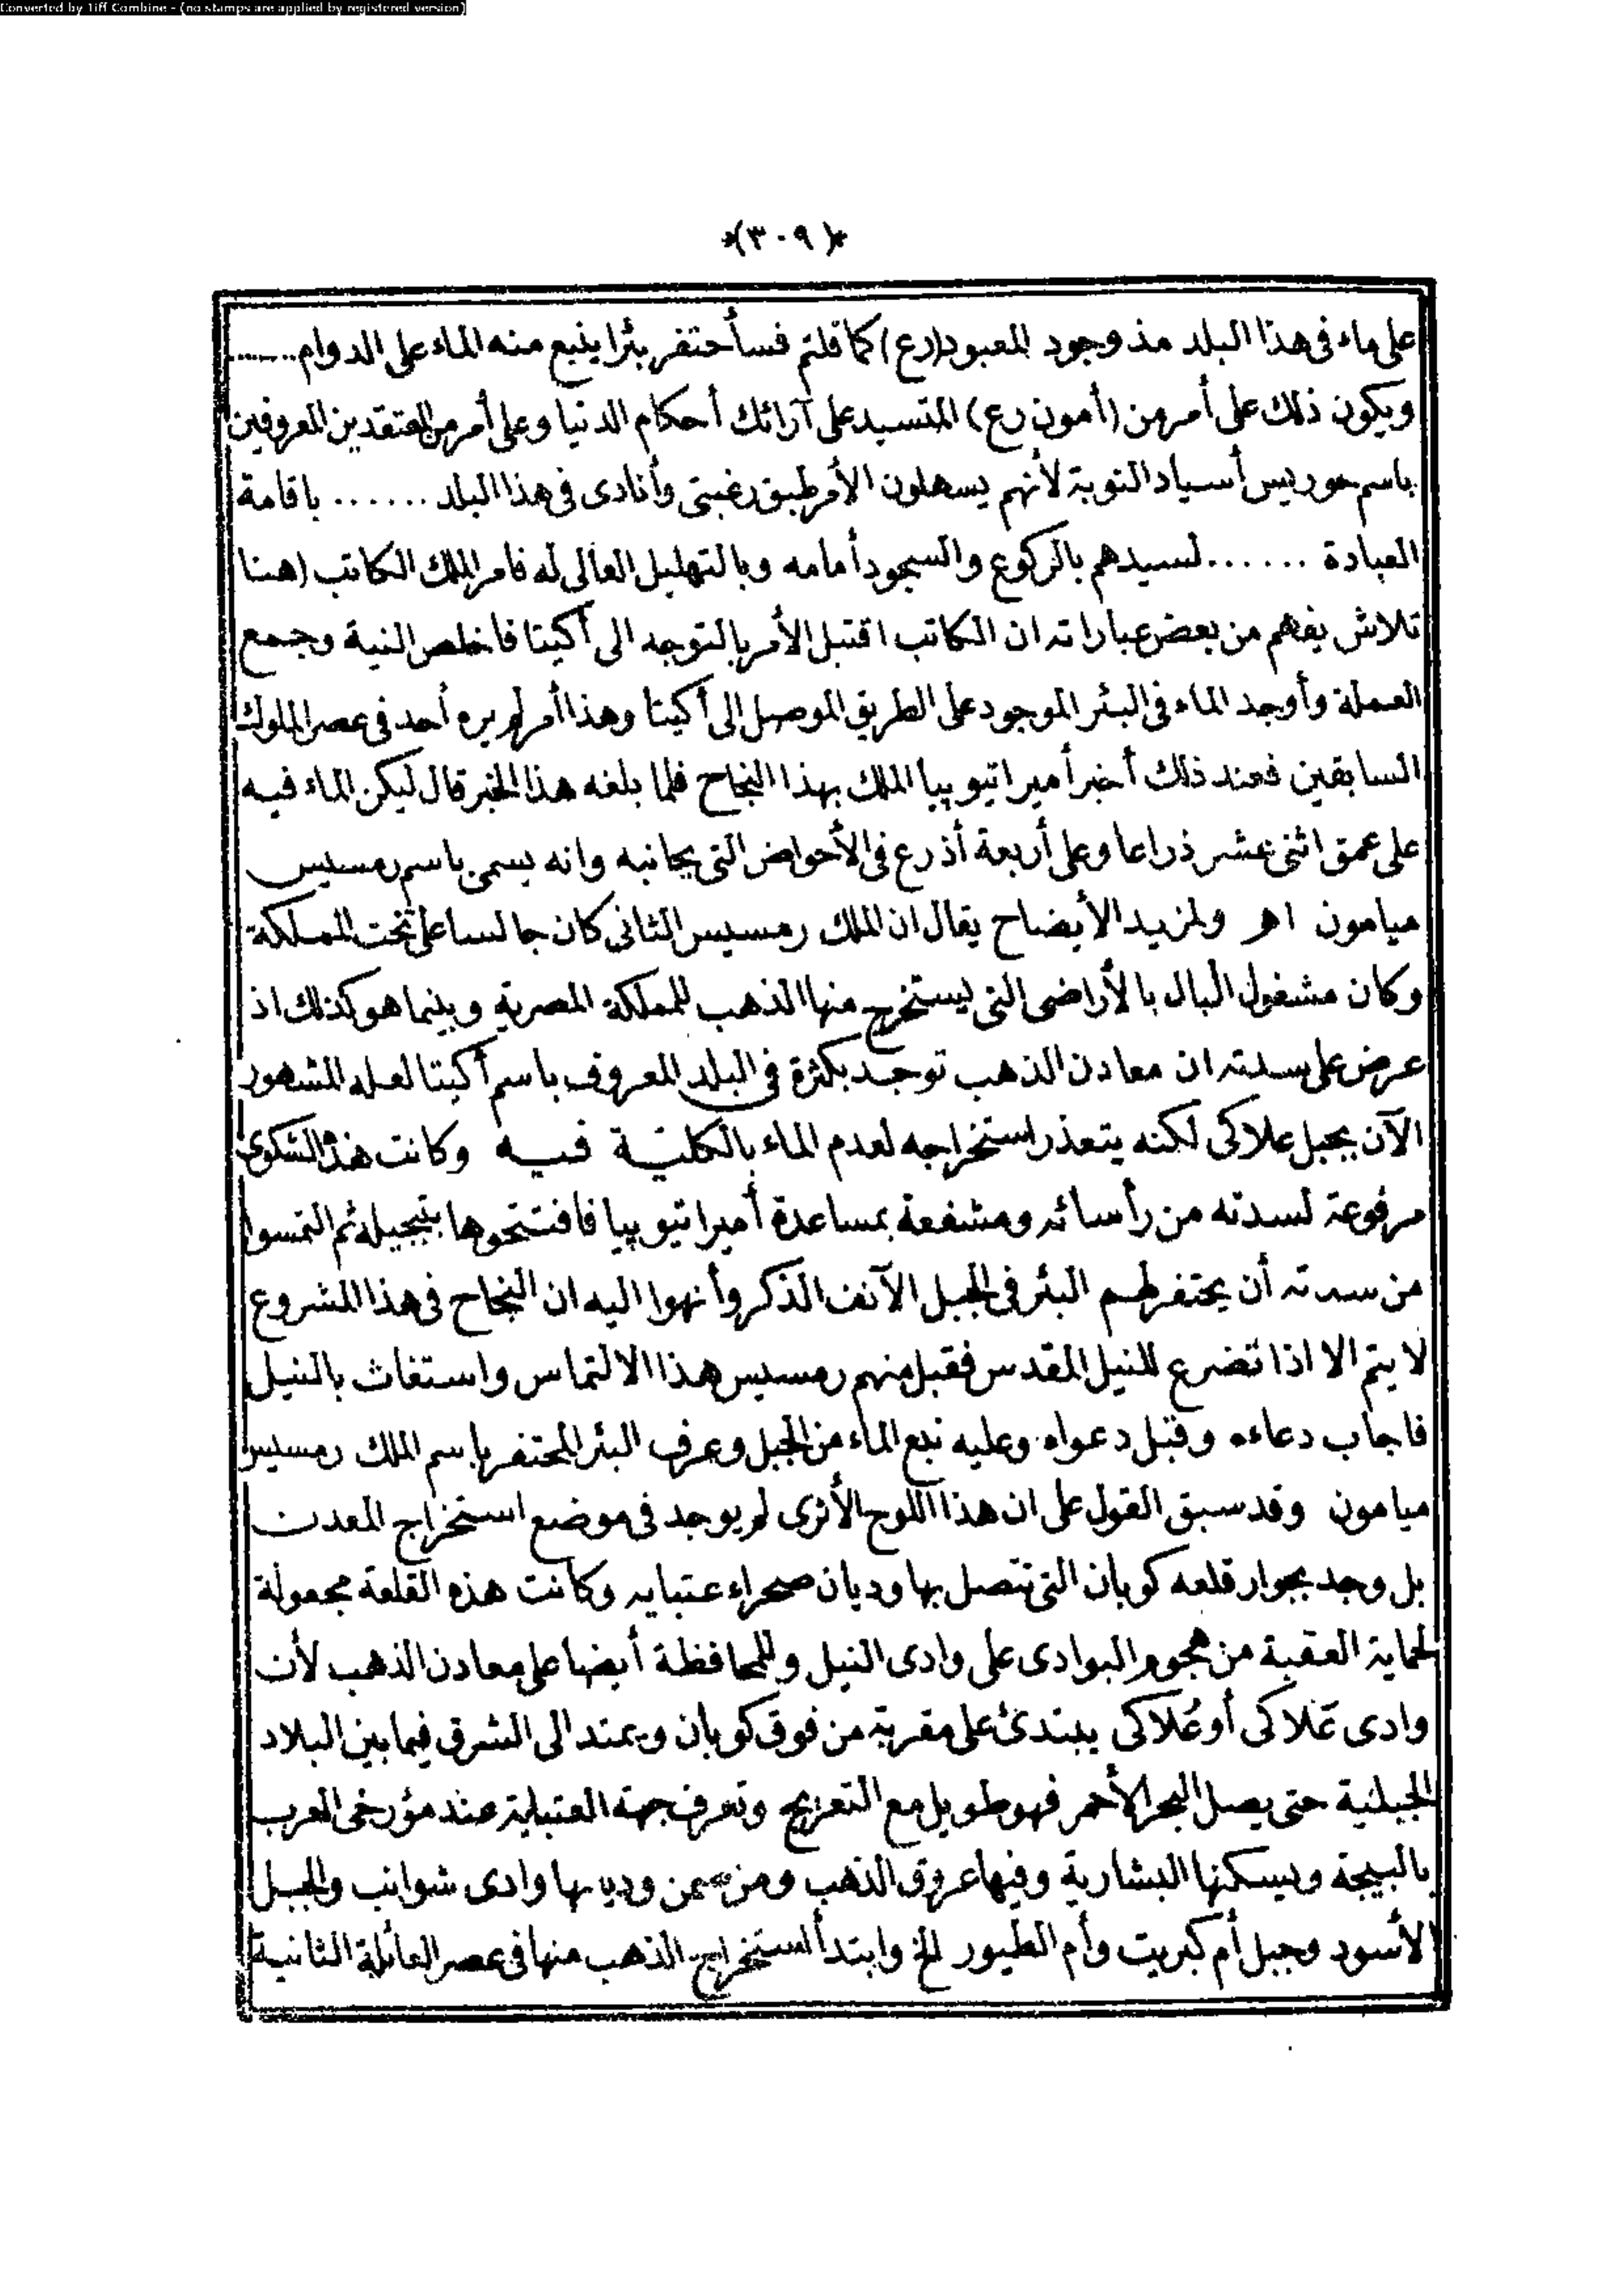 Converted by Tiff Combine - (no stamps are applied by registered version)
*(٣٠٩)*
على ماء فى هذا البلد مذ وجود المعبود (رع) كما قلتم فسأحتفر بئرا ينبع منه الماء على الدوام ......
ويكون ذلك على أمر من (أمون رع) المتسيد على آرائك أحكام الدنيا وعلى أمر من المعتقدين المعروفين
باسم حوريس أسياد النوبة لأنهم يسهلون الأمر طبق رغبتى وأنادى فى هذا البلد ...... باقامة
العبادة ...... لسيدهم بالركوع والسجود أمامه وبالتهليل العالى له فامر الملك الكاتب (هنا
تلاش يفهم من بعض عباراته ان الكاتب اقتبل الأمر بالتوجه الى أكيتا فاخلص النية وجمع
العملة وأوجد الماء فى البئر الموجود على الطريق الموصل الى أكيتا وهذا أمر لم يره أحد فى عصر الملوك
السابقين فعند ذلك أخبر أمير اتيوپيا الملك بهذا النجاح فلما بلغه هذا الخبر قال ليكن الماء فيه
على عمق اثنى عشر ذراعا وعلى أربعة أذرع فى الأحواض التى بجانبه وانه يسمى باسم رمسيس
ميامون اهـ ولمزيد الأيضاح يقال ان الملك رمسيس الثانى كان جالسا على تخت المملكة
وكان مشغول البال بالأراضى التى يستخرج منها الذهب للمملكة المصرية وبينما هو كذلك اذ
عرض على سدته ان معادن الذهب توجد بكثرة فى البلد المعروف باسم أكيتا لعله المشهور
الآن بجبل علاكى لكنه يتعذر استخراجه لعدم الماء بالكلية فيه وكانت هذه الشكوى
مرفوعة لسدته من رأسائه ومشفعة بمساعدة أمير اتيوپيا فافتتحوها بتبجيله ثم التمسوا
من سدته أن يحتفر لهم البئر فى الجبل الآنف الذكر وأنهوا اليه ان النجاح فى هذا المشروع
لا يتم الا اذا تضرع للنيل المقدس فقبل منهم رمسيس هذا الالتماس واستغاث بالنيل
فاجاب دعاءه وقبل دعواه وعليه نبع الماء من الجبل وعرف البئر المحتفر باسم الملك رمسيس
ميامون وقد سبق القول على ان هذا اللوح الأثرى لم يوجد فى موضع استخراج المعدن
بل وجد بجوار قلعه كوبان التى تتصل بها وديان صحراء عتبايه وكانت هذه القلعة مجعولة
لحماية العقبة من هجوم البوادى على وادى النيل وللمحافظة أيضا على معادن الذهب لأن
وادى عَلاكى أو عُلاكى يبتدئ على مقربة من فوق كوبان ويمتد الى الشرق فيما بين البلاد
الجبلية حتى يصل البحر الأحمر فهو طويل مع التعريج وتعرف جهة العتباية عند مؤرخى العرب
بالبيجة ويسكنها البشارية وفيها عروق الذهب ومن ضمن وديانها وادى شوانب والجبل
الأسود وجبل أم كبريت وأم الطيور الخ وابتدأ استخراج الذهب منها فى عصر العائلة الثانية